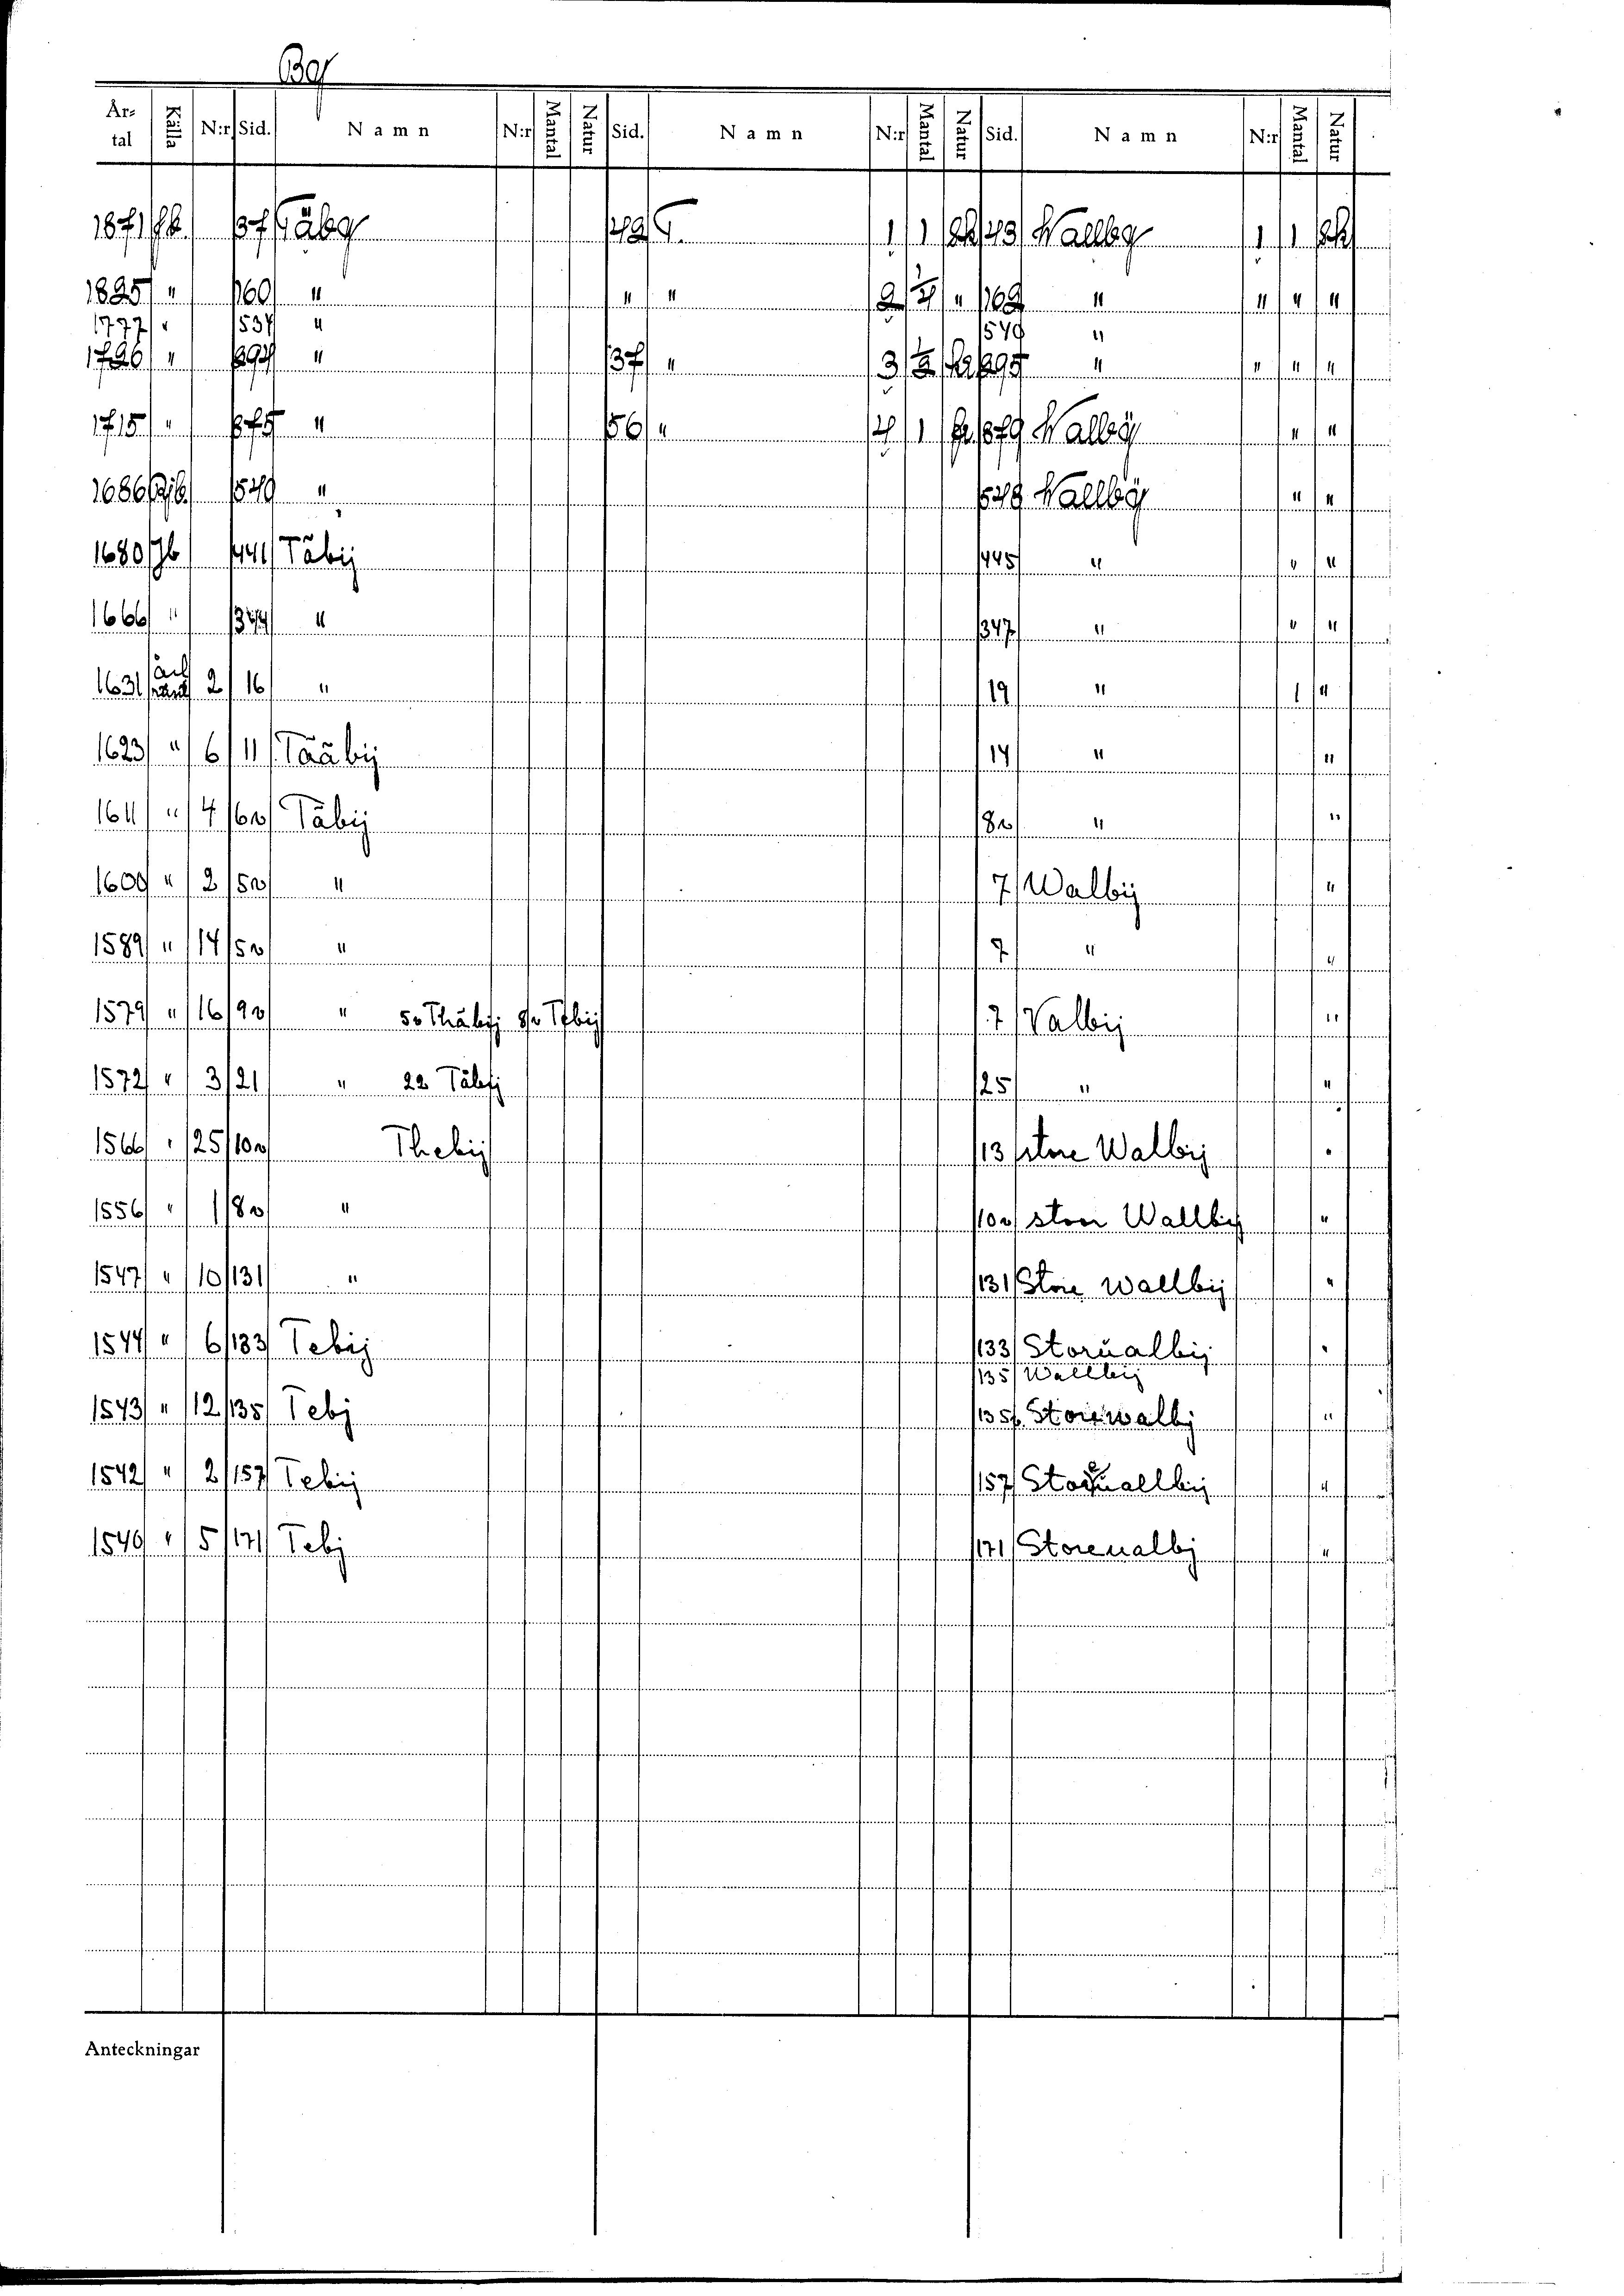 By
År-tal Källa N:r Sid. Namn N:r Mantal Natur Sid. Namn N:r Mantal Natur Sid. Namn N:r Mantal Natur
1871 Jb. 37 Täby 42 T. 1 1 Sk 43 Wallby 1 1 Sk
1825 " 160 " " " 2 1/4 " 162 " " " "
1777 " 534 " 540 "
1726 " 892 " 37 " 3 1/2 895 " " " "
1715 " 875 " 56 " 4 1 879 Walbÿ " "
1686 Rjb. 540 " 548 Wallbÿ " "
1680 Jb 441 Täbij 445 " " "
1666 " 344 " 347 " " "
1631 årl ränt 2 16 " 19 " 1 "
1623 " 6 11 Tääbij 14 " "
1611 " 4 6v Täbij 8v " "
1600 " 2 5v " 7 Walbij "
1589 " 14 5v " 7 " "
1579 " 16 9v " 5v Thäbij 8v Tebij 7 Valbij "
1572 " 3 21 " 22 Täbij 25 " "
1566 " 25 10v Thebij 13 store Walbij "
1556 " 1 8v " 10v stoor Wallbij "
1547 " 10 131 " 131 Store Wallbij "
1544 " 6 133 Tebij 133 Storŭalbij "
135 Wallbij
1543 " 12 135 Tebj 135b Storewalbj "
1542 " 2 157 Tebij 157 Storeŭallbij "
1540 " 5 171 Tebj 171 Storeualbj "
Anteckningar